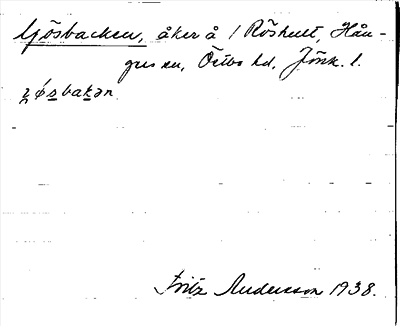 Gjösbacken, åker å 1 Röshult, Hån-
ger sn, Östbo hd, Jönk. l.
ɟøsbakən
Fritz Andersson 1938.